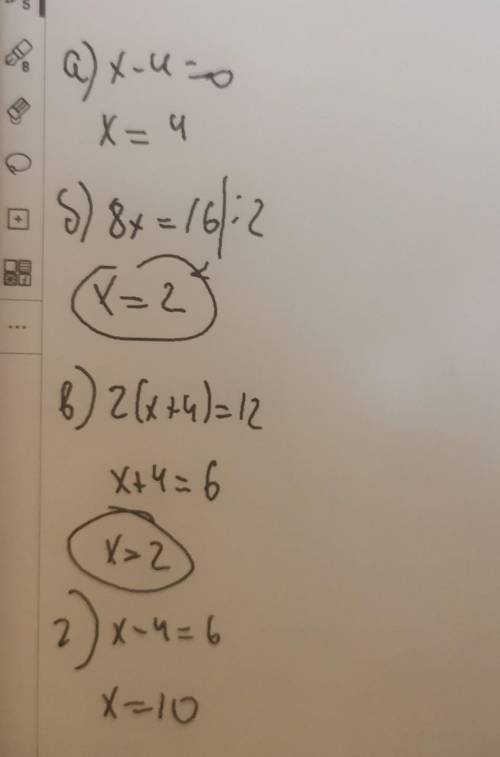 а) x-4=0
x=4
б) 8x=16|:2
x=2
в) 2(x+4)=12
x+4=6
x=2
г) x-4=6
x=10